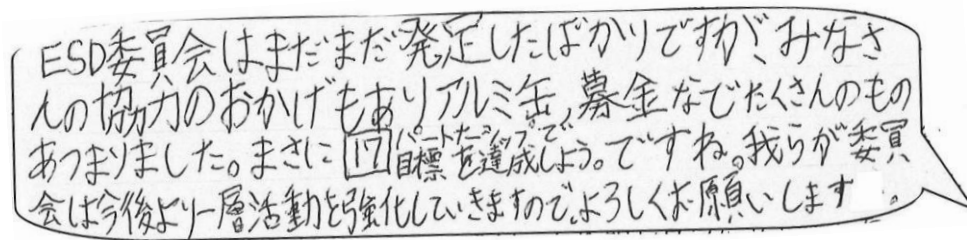 ESD委員会はまだまだ発足したばかりですが、みなさ
んの協力のおかげもありアルミ缶、募金などたくさんのもの
あつまりました。まさに 17 パートナーシップで目標を達成しよう。ですね。我らが委員
会は今後より一層活動を強化していきますので、よろしくお願いします。